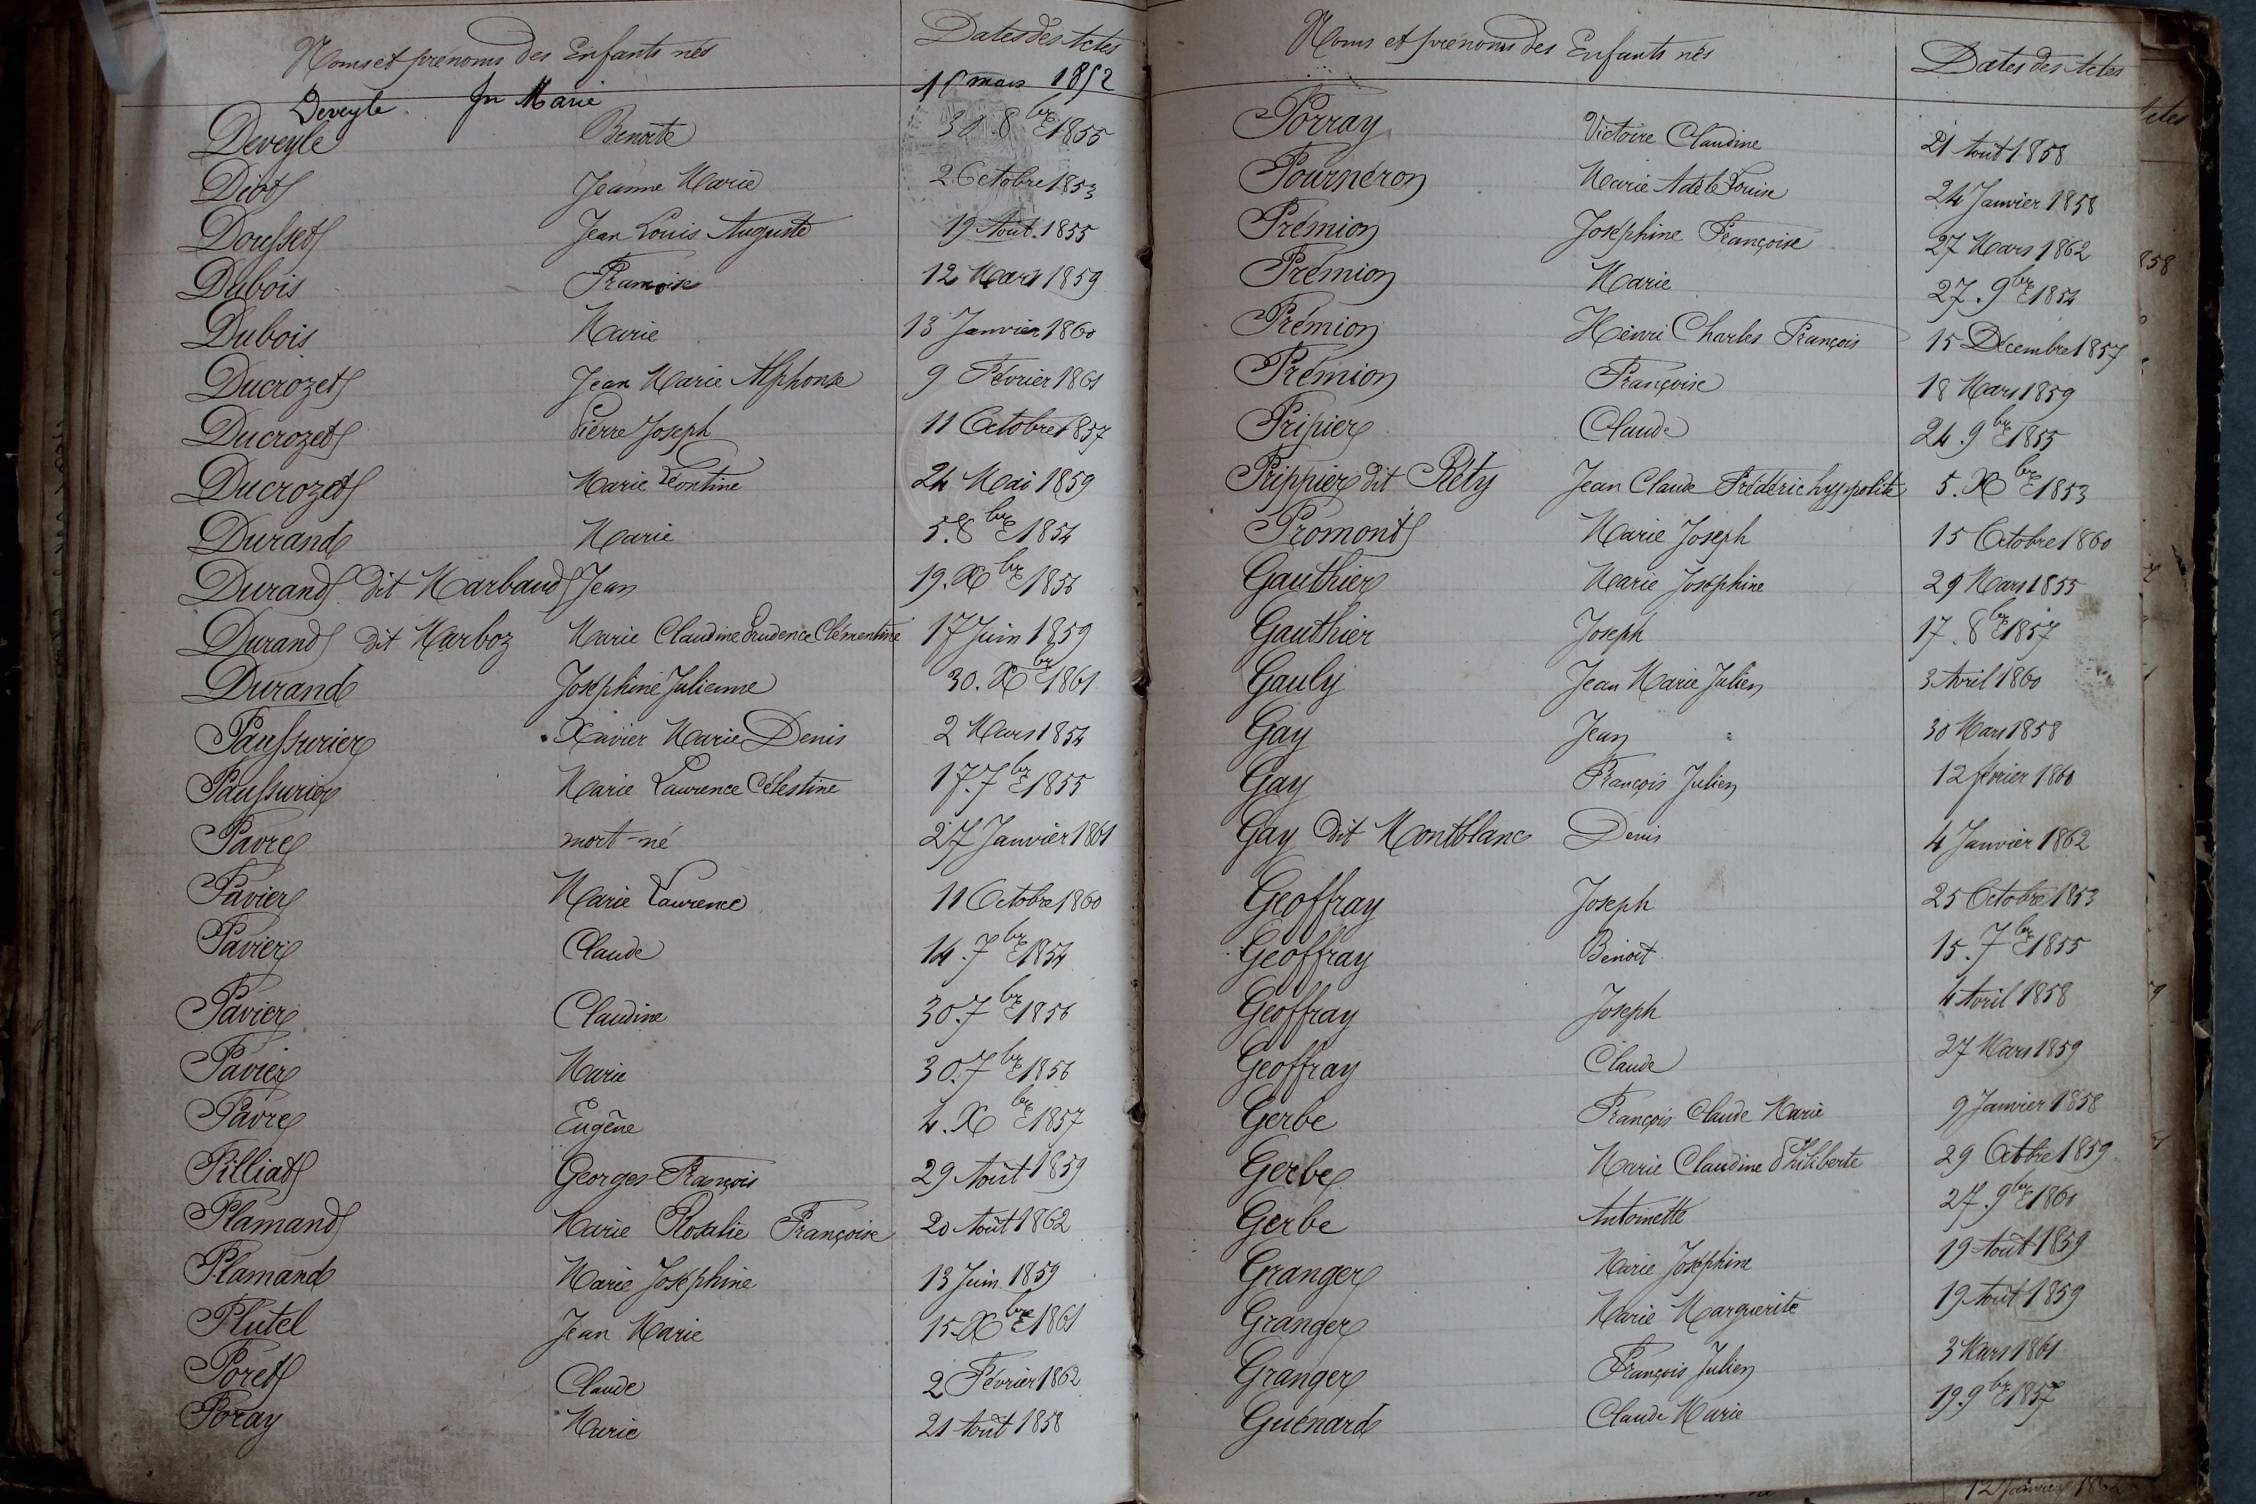 Noms et prénoms des Enfants nés Dates des Actes
Deveyle Jn Marie 11 mars 1852
Deveyle Benoite 31. 8bre 1855
Diot Jeanne Marie 2 Octobre 1853
Dousset Jean Louis Auguste 19 Août 1855
Dubois Françoise 12 Mars 1859
Dubois Marie 13 Janvier 1860
Ducrozet Jean Marie Alphonse 9 Février 1861
Ducrozet Pierre Joseph 11 Octobre 1857
Ducrozet Marie Léontine 24 Mai 1859
Durand Marie 5. 8bre 1854
Durand dit Marbaud Jean 19. Xbre 1856
Durand dit Marboz Marie Claudine Prudence Clémentine 17 Juin 1859
Durand Joséphine Julienne 30. Xbre 1861
Faussurier Xavier Marie Denis 2 Mars 1854
Faussurier Marie Laurence Célestine 17. 7bre 1855
Favre mort-né 27 Janvier 1861
Favier Marie Laurence 11 Octobre 1860
Favier Claude 14. 7bre 1854
Favier Claudine 30. 7bre 1856
Favier Marie 30. 7bre 1856
Favre Eugène 4. Xbre 1857
Filliat Georges François 29 Août 1859
Flamand Marie Rosalie Françoise 20 Août 1862
Flamand Marie Joséphine 13 Juin 1859
Flutel Jean Marie 15. Xbre 1861
Foret Claude 2 Février 1862
Foray Marie 21 Août 1858
Noms et prénoms des Enfants nés Dates des Actes
Forray Victoire Claudine 21 Août 1858
Fournéron Marie Adèle Louise 24 Janvier 1858
Frémion Joséphine Françoise 27 Mars 1862
Frémion Marie 27. 9bre 1854
Frémion Henri Charles François 15 Décembre 1857
Frémion Françoise 18 Mars 1859
Fripier Claude 24. 9bre 1855
Frippier dit Réty Jean Claude Fréderic hyppolite 5. Xbre 1853
Fromont Marie Joseph 15 Octobre 1860
Gauthier Marie Joséphine 29 Mars 1855
Gauthier Joseph 17. 8bre 1857
Gauly Jean Marie Julien 3 Avril 1860
Gay Jean 30 Mars 1858
Gay François Julien 12 février 1860
Gay dit Montblanc Denis 4 Janvier 1862
Geoffray Joseph 25 Octobre 1853
Geoffray Benoît 15. 7bre 1855
Geoffray Joseph 4 Avril 1858
Geoffray Claude 27 Mars 1859
Gerbe François Claude Marie 9 Janvier 1858
Gerbe Marie Claudine Philiberte 29 Octbre 1859
Gerbe Antoinette 27. 9bre 1861
Granger Marie Joséphine 19 Août 1859
Granger Marie Marguerite 19 Août 1859
Granger François Julien 3 Mars 1861
Guénard Claude Marie 19. 9bre 1857